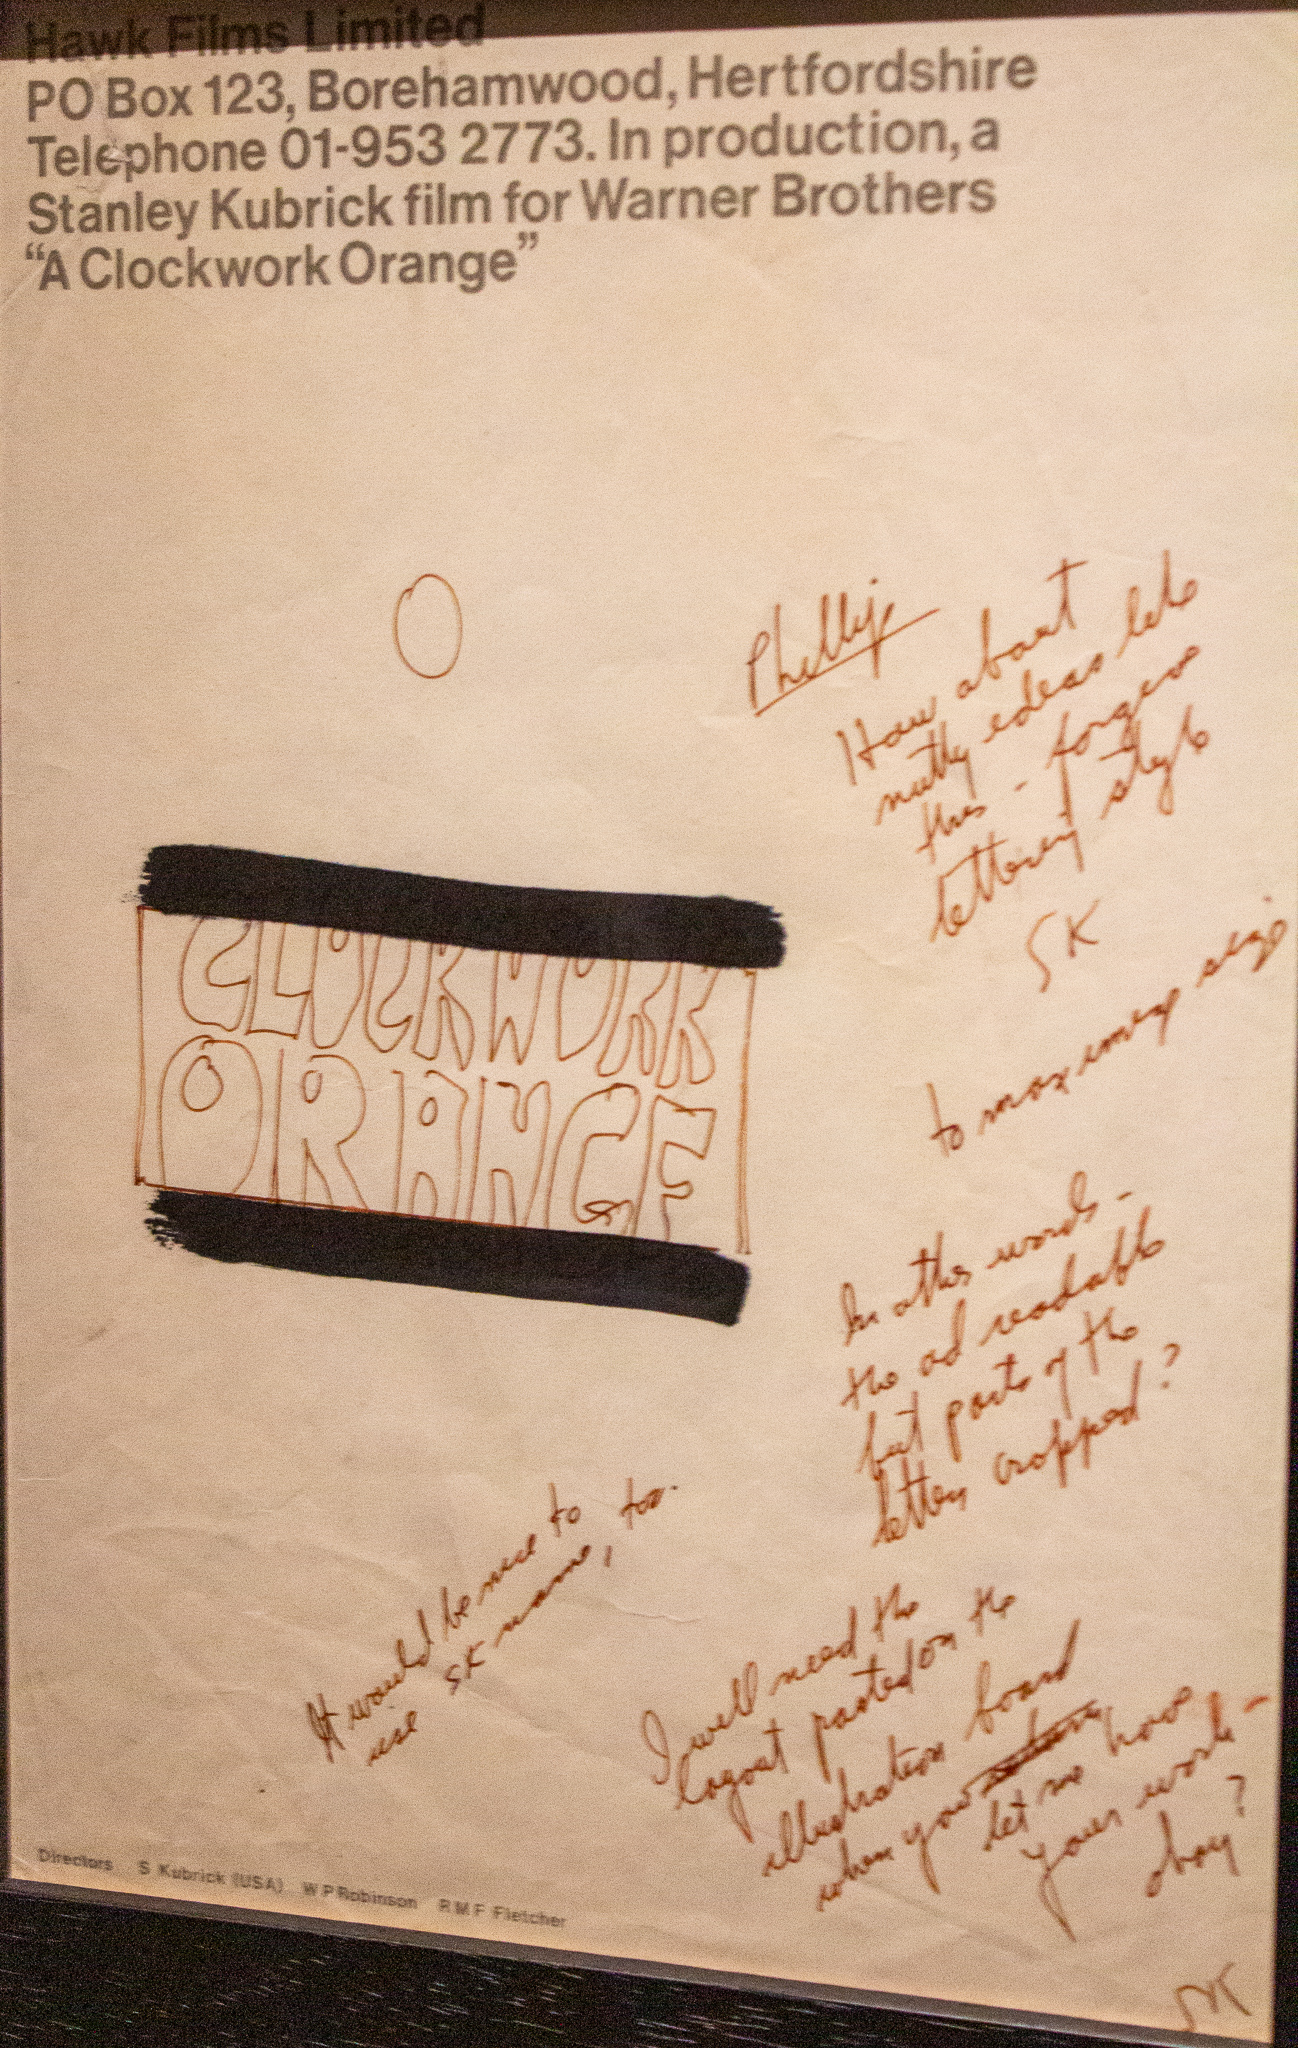 Hawk Films Limited
PO Box 123, Borehamwood, Hertfordshire
Telephone 01-953 2773. In production, a
Stanley Kubrick film for Warner Brothers
“A Clockwork Orange”
Phillip
How about
nutty ideas like
this - forgive
lettering style
SK
to maximize size
CLOCKWORK
ORANGE
In other words -
the ad readable
but parts of the
letters cropped?
It would be nice to
use SK name, too.
I will need the
logout pasted on the
illustration board
when you
let me have
your work -
okay?
SK
Directors S Kubrick (USA) W P Robinson R M F Fletcher